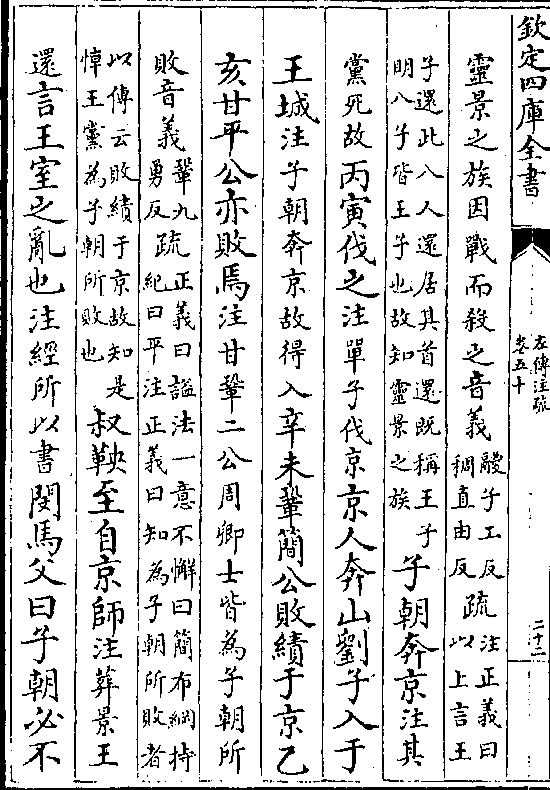 欽定四庫全書
左傳注疏
卷五十
二十二
靈景之族因戰而殺之音義 鬷子工反
稠直由反
疏 注正義曰
以上言王
子還此八人還居其首還既稱王子
明八子皆王子也故知靈景之族
子朝奔京注其
黨死故丙寅伐之注單子伐京京人奔山劉子入于
王城注子朝奔京故得入辛未鞏簡公敗績于京乙
亥甘平公亦敗焉注甘鞏二公周卿士皆為子朝所
敗音義 鞏九
勇反
疏 正義曰謚法一意不懈曰簡布綱持
紀曰平注正義曰知為子朝所敗者
以傳云敗績于京故知是
悼王黨為子朝所敗也
叔鞅至自京師注葬景王
還言王室之亂也注經所以書閔馬父曰子朝必不